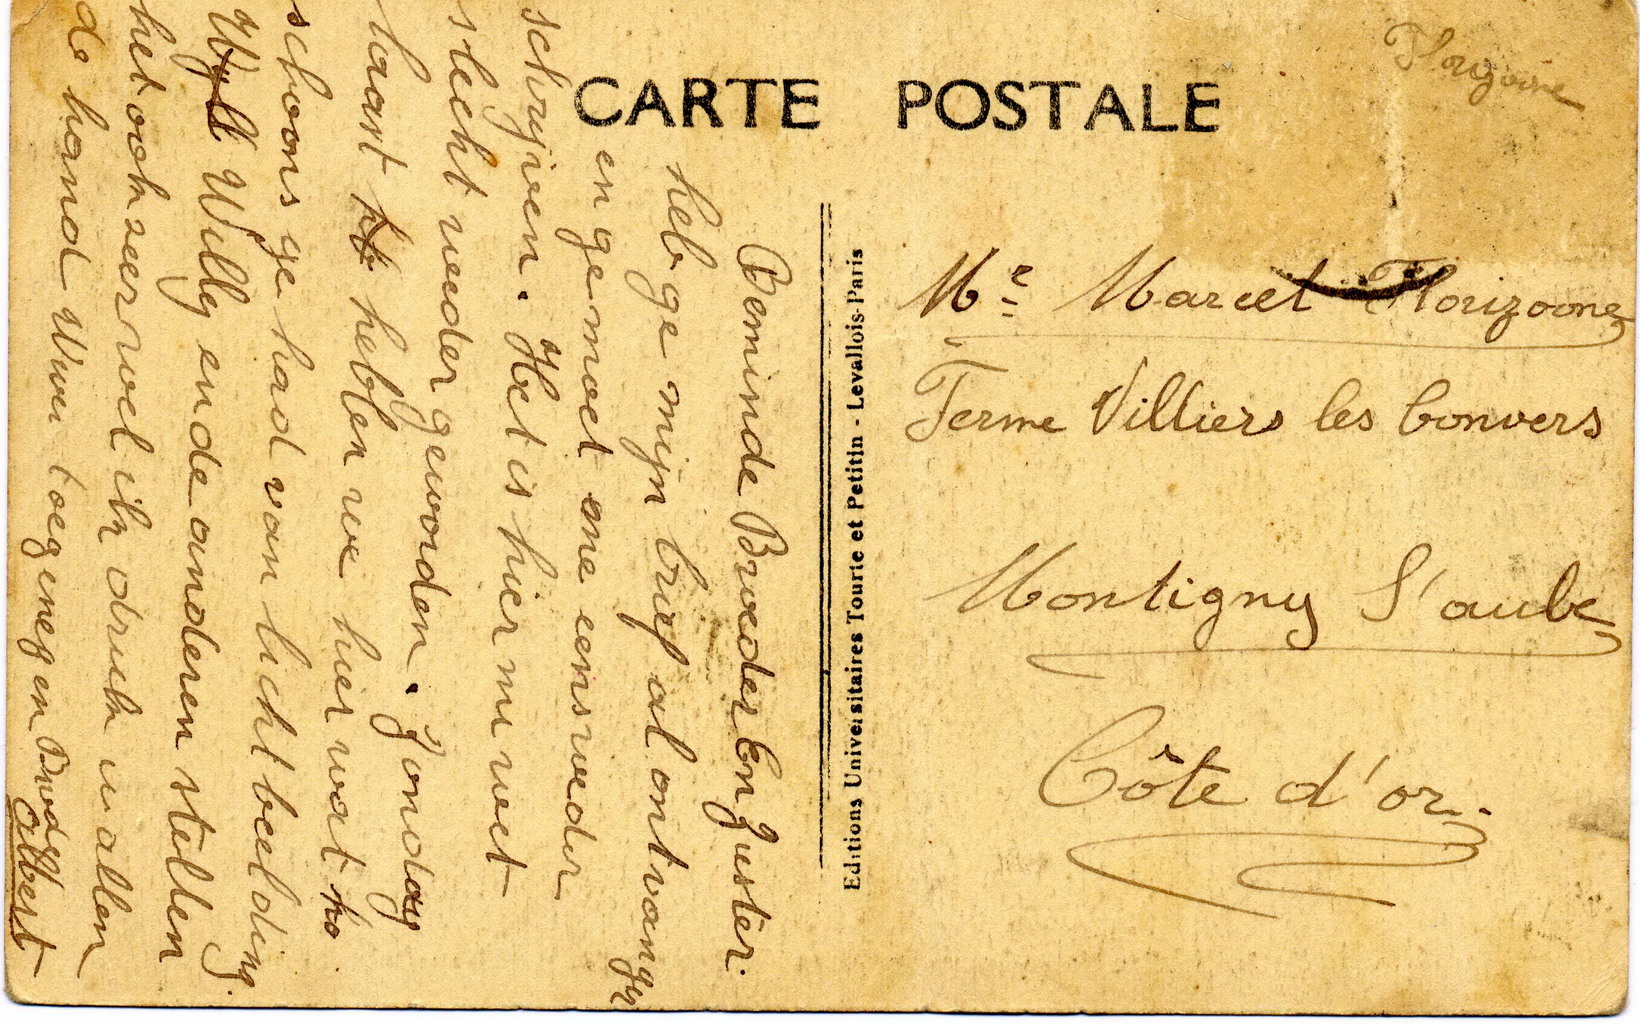 CARTE POSTALE
Beminde Broeder En Zuster.
heb ge mijn brief al ontvangen
en ge moet me eens weder
schrijven. Het is hier nu wet
slecht weder geworden. Zondag
laast hebben we hier wat
schoons gehad van lichtbeelding.
Willy en de anderen stellen
het ook zeer wel ik druk u allen
de hand Uwen toegenegen Broeder
Albert
Editions Universitaires Tourte et Petitin - Levallois-Paris
Florizoone
Mr Marcel Florizoone
Ferme Villiers les Convers
Montigny S'aube
Côte d'or.